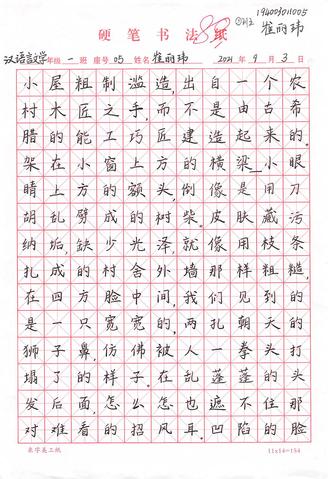 194003011005
硬笔书法纸
88
崔丽玮
汉语言文学年级 一 班 座号 05 姓名 崔丽玮 2021 年 9 月 3 日
小屋粗制滥造,出自一个农
村木匠之手,而不是由古希
腊的能工巧匠建造起来的。
架在小窗上方的横梁——小眼
睛上方的额头,倒像是用刀
胡乱劈成的树柴。皮肤藏污
纳垢,缺少光泽,就像用枝条
扎成的村舍外墙那样粗糙,
在四方脸中间,我们见到的
是一只宽宽的,两扎朝天的
狮子鼻,仿佛被人一拳头打
塌了的样子。在乱蓬蓬的头
发后面,怎么怎也遮不住那
对难看的招风耳。凹陷的脸
米字美工纸
11x14=154